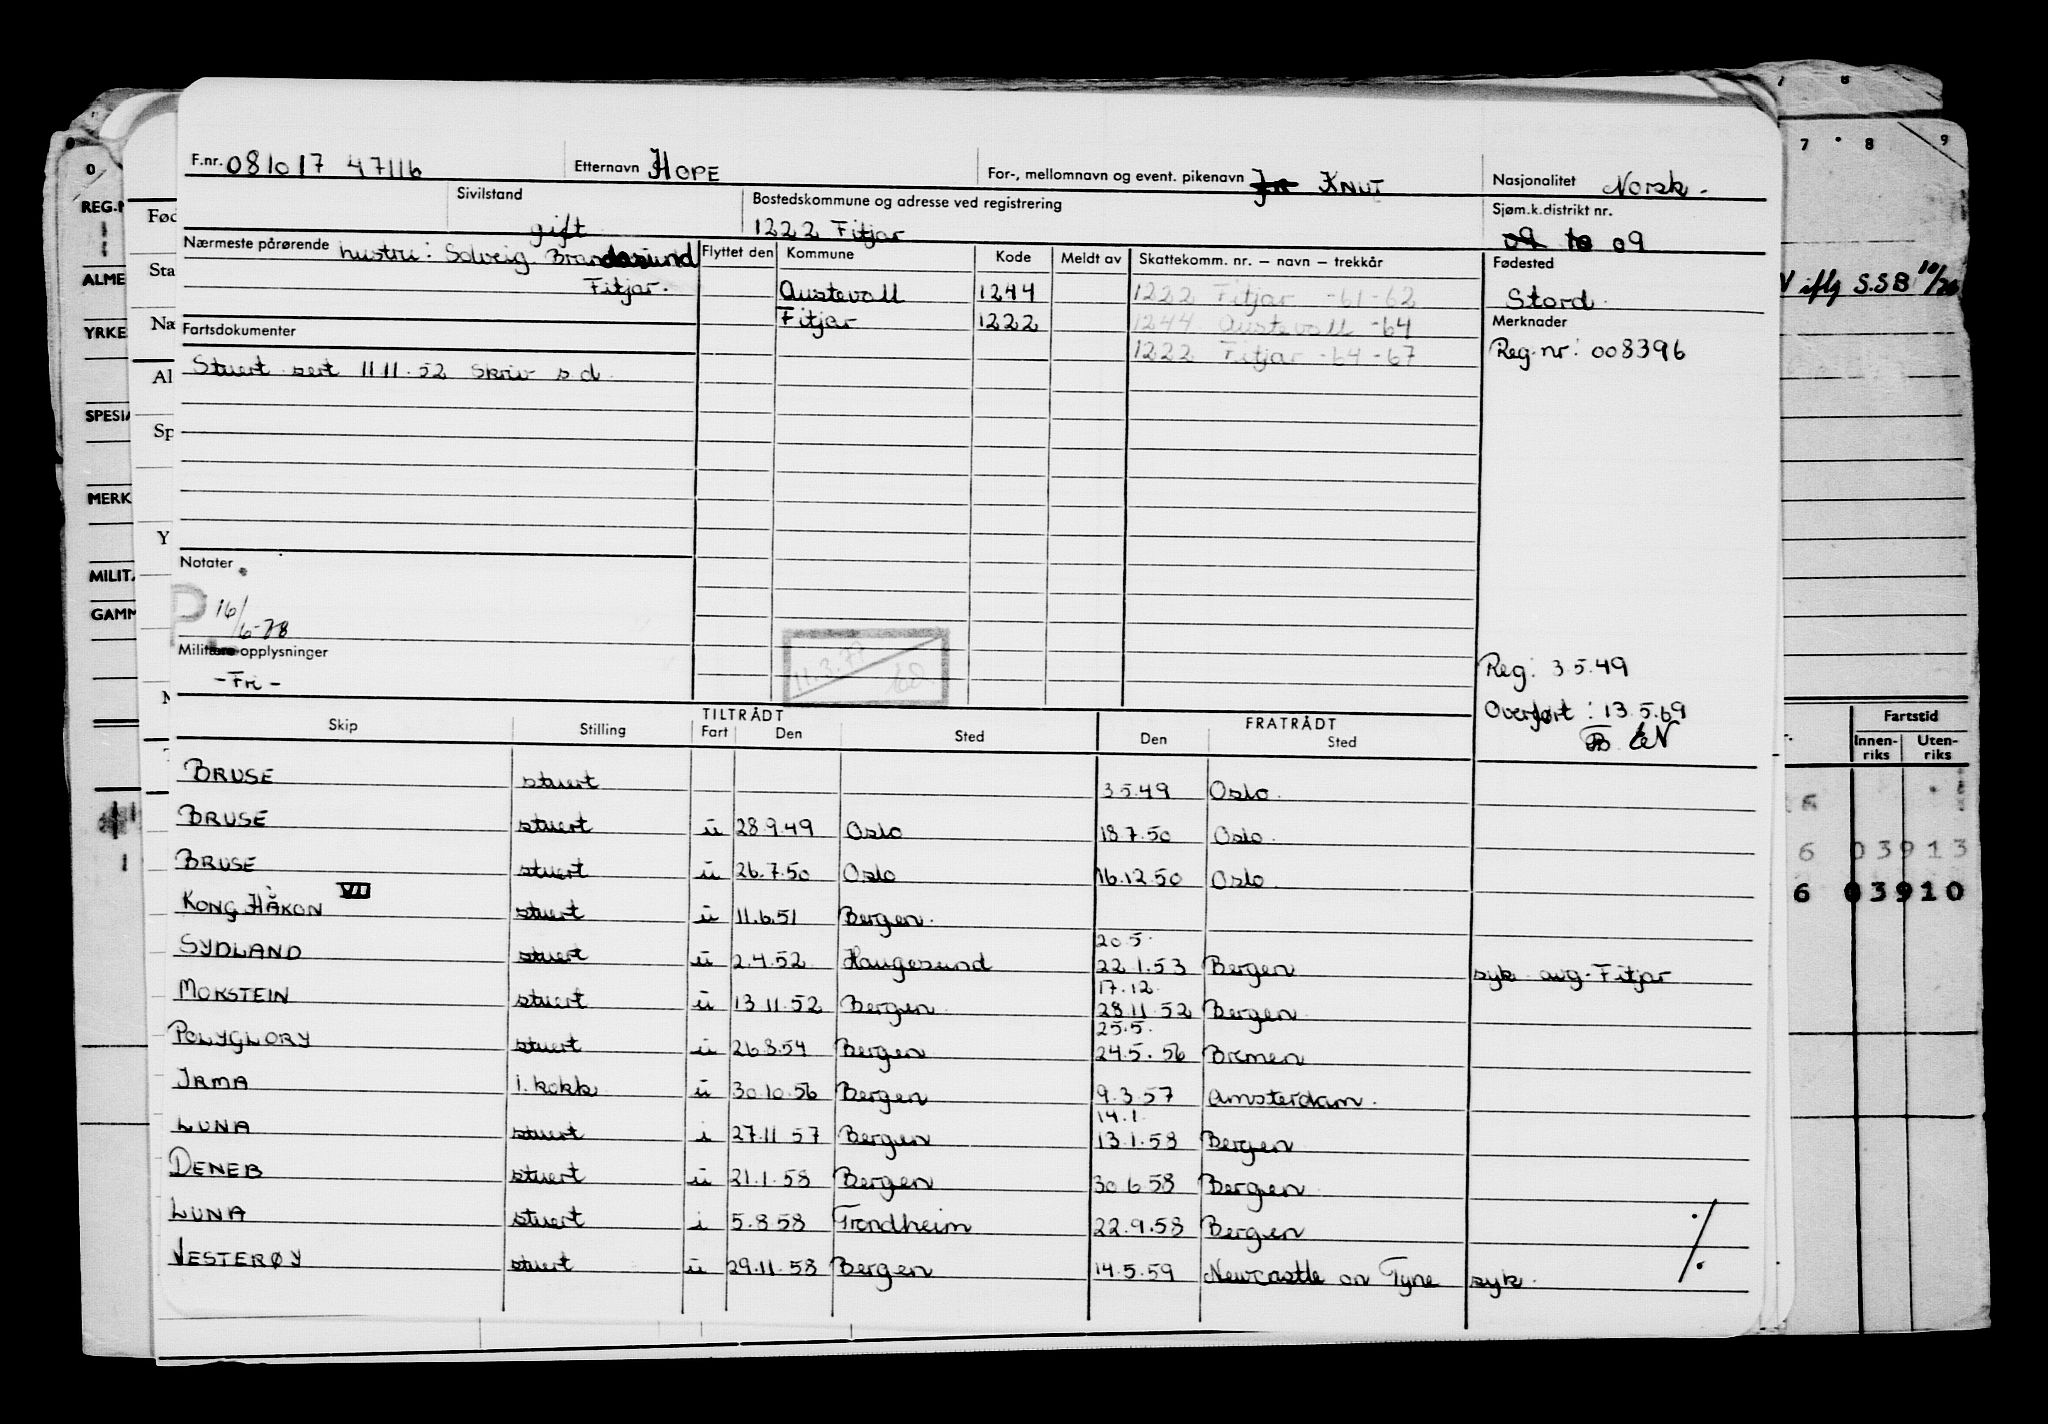 F.nr. 081017 47116 Etternavn HOPE For-, mellomnavn og event. pikenavn KNUT Nasjonalitet Norsk.
Sivilstand gift Bostedskommune og adresse ved registrering 1222 Fitjar Sjøm.k.distrikt nr. 09 10 09
Nærmeste pårørende hustru: Solveig. Brandasund Fitjar.
Flyttet den Kommune Kode Meldt av Skattekomm. nr. – navn – trekkår Fødested
Austevoll 1244 1222 Fitjar -61-62 Stord.
Fitjar 1222 1244 Austevoll -64 Merknader
1222 Fitjar -64-67 Reg.nr: 008396
Fartsdokumenter
Stuert sert 11 11.52 Skriv s d.
Notater
16/6-78
Militære opplysninger
-Fri-
11.3.77
Reg: 3 5.49
Overført: 13.5.69
EN
Skip Stilling TILTRÅDT Fart Den Sted FRATRÅDT Den Sted
BRUSE stuert 3.5.49 Oslo.
BRUSE stuert u 28.9.49 Oslo 18.7.50 Oslo.
BRUSE stuert u 26.7.50 Oslo 16.12.50 Oslo.
KONG HÅKON VII stuert u 11.6.51 Bergen.
20.5.
SYDLAND stuert u 2.4.52 Haugesund 22.1.53 Bergen syk avg-Fitjar
17.12.
MOKSTEIN stuert u 13.11.52 Bergen 28.11.52 Bergen
25.5.
POLYGLORY stuert u 26.8.54 Bergen 24.5.56 Bremen
IRMA 1. kokk u 30.10.56 Bergen 9.3.57 Amsterdam.
14.1.
LUNA stuert i 27.11 57 Bergen 13.1.58 Bergen
DENEB stuert u 21.1.58 Bergen 30 6 58 Bergen
LUNA stuert i 5.8 58 Trondheim 22.9.58 Bergen
VESTERØY stuert u 29.11.58 Bergen 14.5.59 Newcastle on Tyne syk.
./.
0
REG.N
ALME
YRKE
SPESIA
MERK
MILIT
GAMM
Fød
Sta
Næ
Al
Sp
Y
7 8
7 8 9
iflg S.S.B
Fartstid
Innenriks Utenriks
6 03913
6 03910